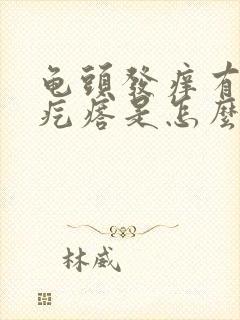 龟頭發痒有
疙瘩是怎麼
林威